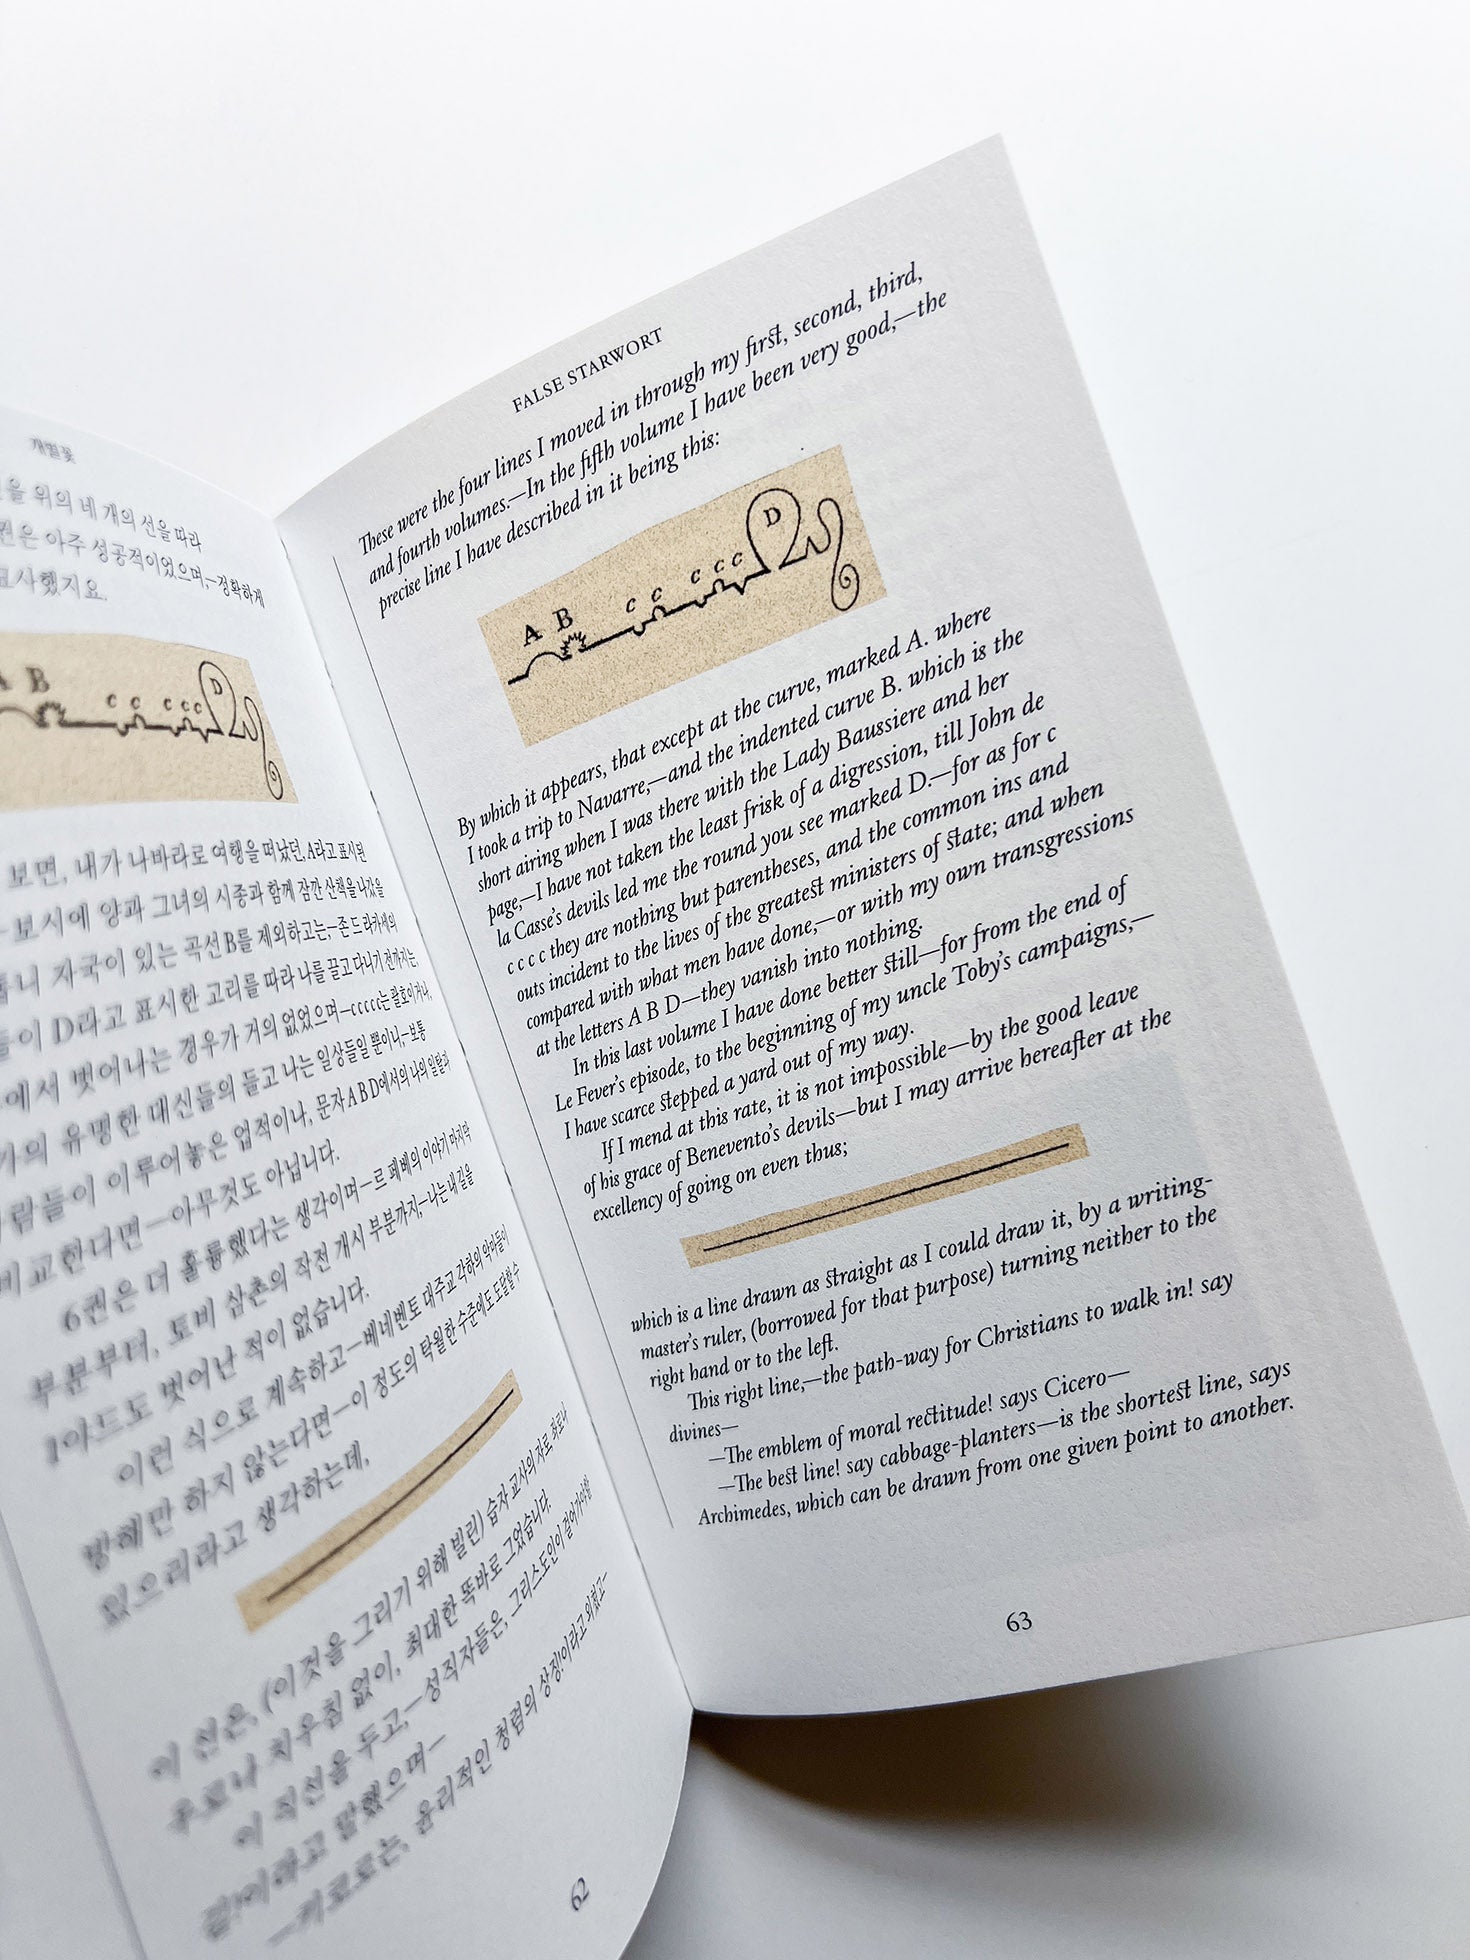 개별꽃
을 위의 네 개의 선을 따라
권은 아주 성공적이었으며,—정확하게
묘사했지요.
A B c c c c c D
보면, 내가 나바라로 여행을 떠났던, A라고 표시된
—보시에 양과 그녀의 시종과 함께 잠깐 산책을 나갔을
니 자국이 있는 곡선 B를 제외하고는,—존 드 라 카세의
들이 D라고 표시한 고리를 따라 나를 끌고 다니기 전까지는,
에서 벗어나는 경우가 거의 없었으며—c c c c c는 괄호이거나,
가의 유명한 대신들의 들고 나는 일상들일 뿐이니,—보통
사람들이 이루어놓은 업적이나, 문자 A B D에서의 나의 일탈과
비교한다면—아무것도 아닙니다.
6권은 더 훌륭했다는 생각이며—르 페베의 이야기 마지막
부분부터, 토비 삼촌의 작전 개시 부분까지,—나는 내 길을
1야드도 벗어난 적이 없습니다.
이런 식으로 계속하고—베네벤토 대주교 각하의 악마들이
방해만 하지 않는다면—이 정도의 탁월한 수준에도 도달할 수
있으리라고 생각하는데,
이 선은, (이것을 그리기 위해 빌린) 습자 교사의 자로 좌로나
우로나 치우침 없이, 최대한 똑바로 그었습니다.
이 직선을 두고,—성직자들은, 그리스도인이 걸어가야할
길!이라고 말했으며—
—키로로는, 윤리적인 청렴의 상징!이라고 외쳤고—
62
FALSE STARWORT
These were the four lines I moved in through my first, second, third,
and fourth volumes.—In the fifth volume I have been very good,—the
precise line I have described in it being this:
A B c c c c c D
By which it appears, that except at the curve, marked A. where
I took a trip to Navarre,—and the indented curve B. which is the
short airing when I was there with the Lady Baussiere and her
page,—I have not taken the least frisk of a digression, till John de
la Casse's devils led me the round you see marked D.—for as for c
c c c c they are nothing but parentheses, and the common ins and
outs incident to the lives of the greatest ministers of state; and when
compared with what men have done,—or with my own transgressions
at the letters A B D—they vanish into nothing.
In this last volume I have done better still—for from the end of
Le Fever's episode, to the beginning of my uncle Toby's campaigns,—
I have scarce stepped a yard out of my way.
If I mend at this rate, it is not impossible—by the good leave
of his grace of Benevento's devils—but I may arrive hereafter at the
excellency of going on even thus;
which is a line drawn as straight as I could draw it, by a writing-
master's ruler, (borrowed for that purpose) turning neither to the
right hand or to the left.
This right line,—the path-way for Christians to walk in! say
divines—
—The emblem of moral rectitude! says Cicero—
—The best line! say cabbage-planters—is the shortest line, says
Archimedes, which can be drawn from one given point to another.
63